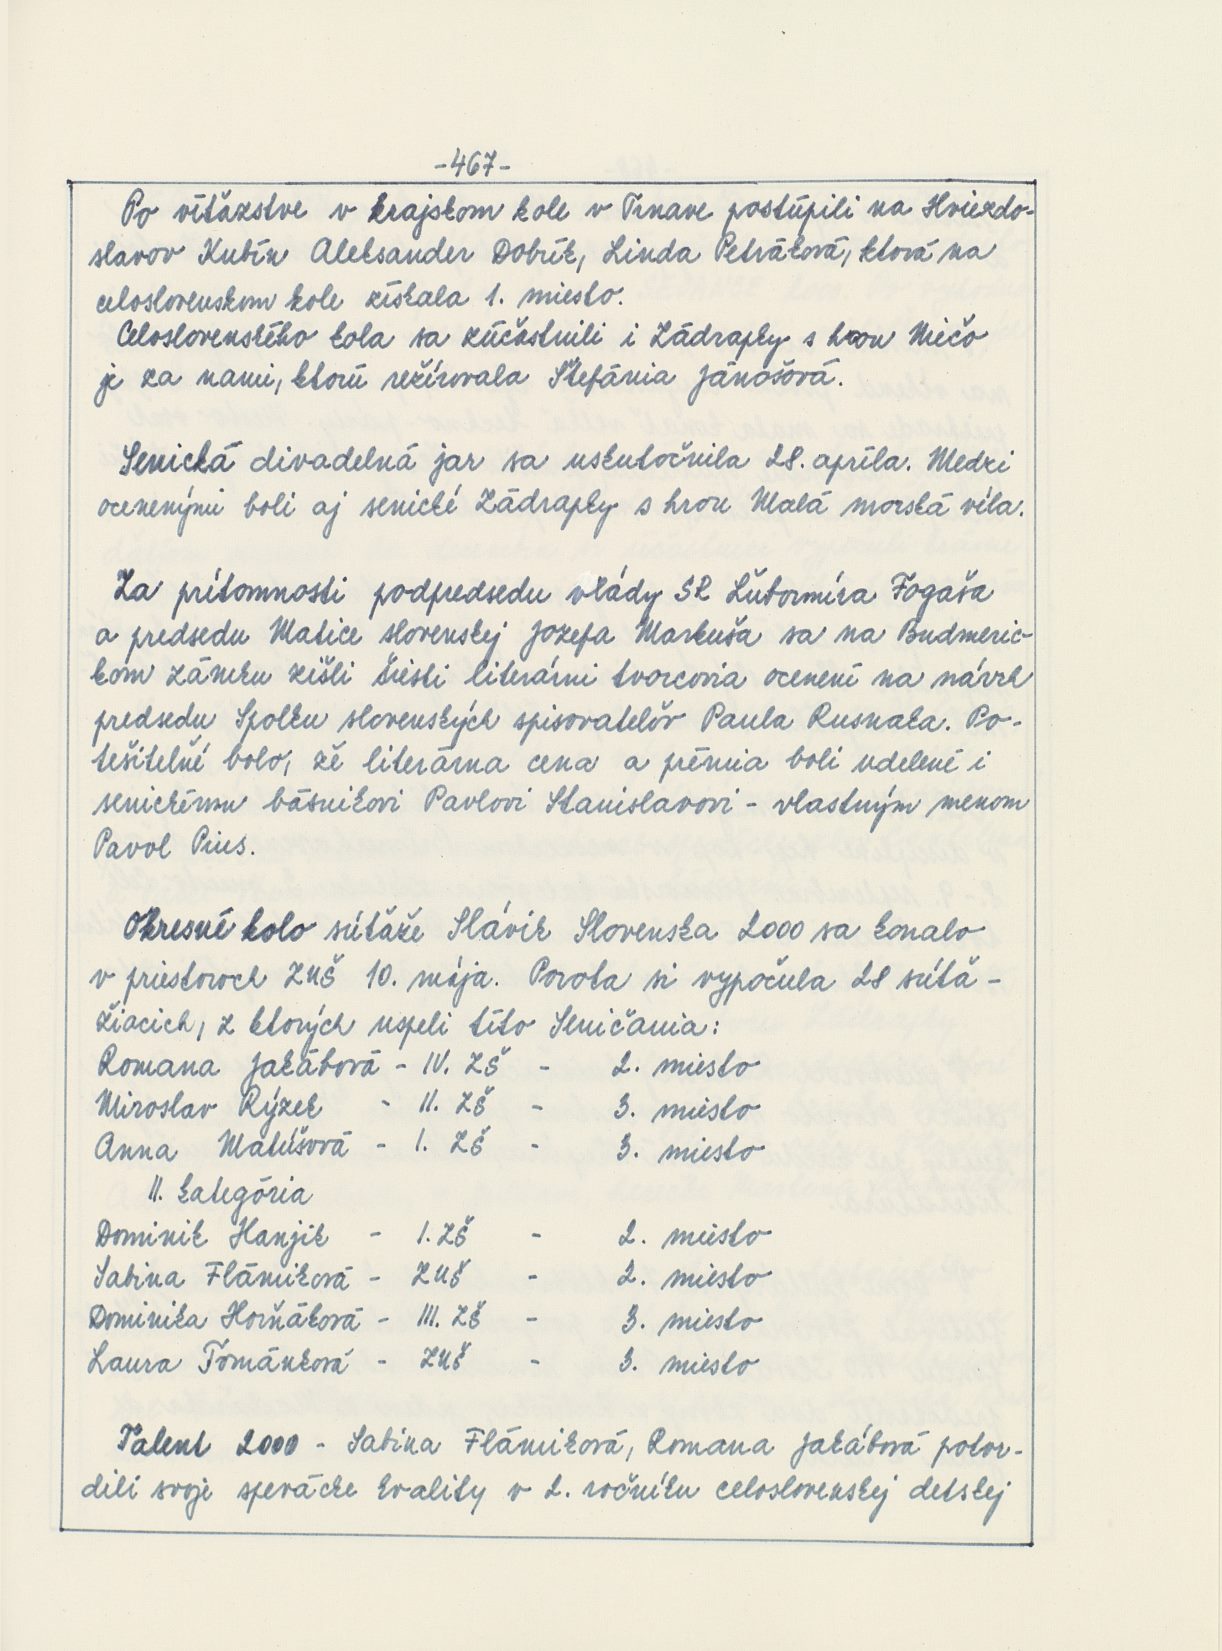 -467-
Po víťazstve v krajskom kole v Trnave postúpili na Hviezdo-
slavov Kubín Aleksander Dobrík, Linda Petráková, ktorá na
celoslovenskom kole získala 1. miesto.
Celoslovenského kola sa zúčastnili i Zádrapky s hrou Niečo
je za nami, ktorú režírovala Štefánia Jánošová.
Senická divadelná jar sa uskutočnila 28. apríla. Medzi
ocenenými boli aj senické Zádrapky s hrou Malá morská víla.
Za prítomnosti podpredsedu vlády SR Ľubomíra Fogaša
a predsedu Matice slovenskej Jozefa Markuša sa na Budmeric-
kom zámku zišli šiesti literárni tvorcovia ocenení na návrh
predsedu Spolku slovenských spisovateľov Paula Rusnaka. Po-
tešiteľné bolo, že literárna cena a prémia boli udelené i
senickému básnikovi Pavlovi Stanislavovi - vlastným menom
Pavol Pius.
Okresné kolo súťaže Slávik Slovenska 2000 sa konalo
v priestoroch ZUŠ 10. mája. Porota si vypočula 28 súťa-
žiacich, z ktorých uspeli títo Seničania:
Romana Jakábová - IV. ZŠ - 2. miesto
Miroslav Rýzek - II. ZŠ - 3. miesto
Anna Matúšová - I. ZŠ - 3. miesto
II. kategória
Dominik Hanjik - I. ZŠ - 2. miesto
Sabina Flámiková - ZUŠ - 2. miesto
Dominika Horňáková - III. ZŠ - 3. miesto
Laura Tománková - ZUŠ - 3. miesto
Talent 2000 - Sabina Flámiková, Romana Jakábová potvr-
dili svoje spevácke kvality v 2. ročníku celoslovenskej detskej